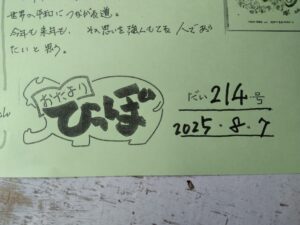 世界の平和につながる道。
今年も来年も、その思いを強くもてる人であり
たいと思う。
おたより
ひっぽ
だい214号
2025.8.7